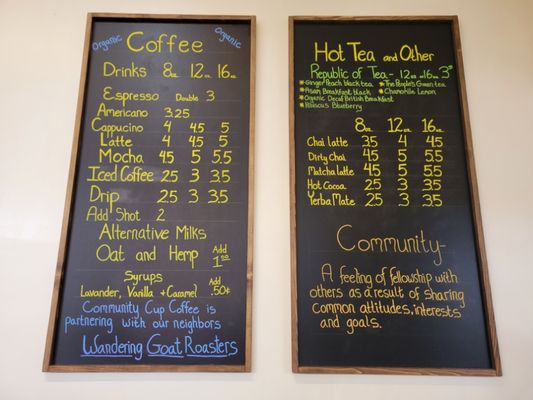 Organic Coffee Organic
Drinks 8oz 12oz 16oz
Espresso Double 3
Americano 3.25
Cappucino 4 4.5 5
Latte 4 4.5 5
Mocha 4.5 5 5.5
Iced Coffee 2.5 3 3.5
Drip 2.5 3 3.5
Add Shot 2
Alternative Milks
Oat and Hemp Add 1.00
Syrups
Lavander, Vanilla + Caramel Add .50¢
Community Cup Coffee is
partnering with our neighbors
Wandering Goat Roasters
Hot Tea and Other
Republic of Tea- 12oz or 16oz 3$
*Ginger Peach black tea *The People's Green tea
*Asam Breakfast black *Chamomile Lemon
*Organic Decaf British Breakfast
*Hibiscus Blueberry
8oz 12oz 16oz
Chai latte 3.5 4 4.5
Dirty Chai 4.5 5 5.5
Matcha latte 4.5 5 5.5
Hot Cocoa 2.5 3 3.5
Yerba Mate 2.5 3 3.5
Community-
A feeling of fellowship with
others as a result of sharing
common attitudes, interests
and goals.